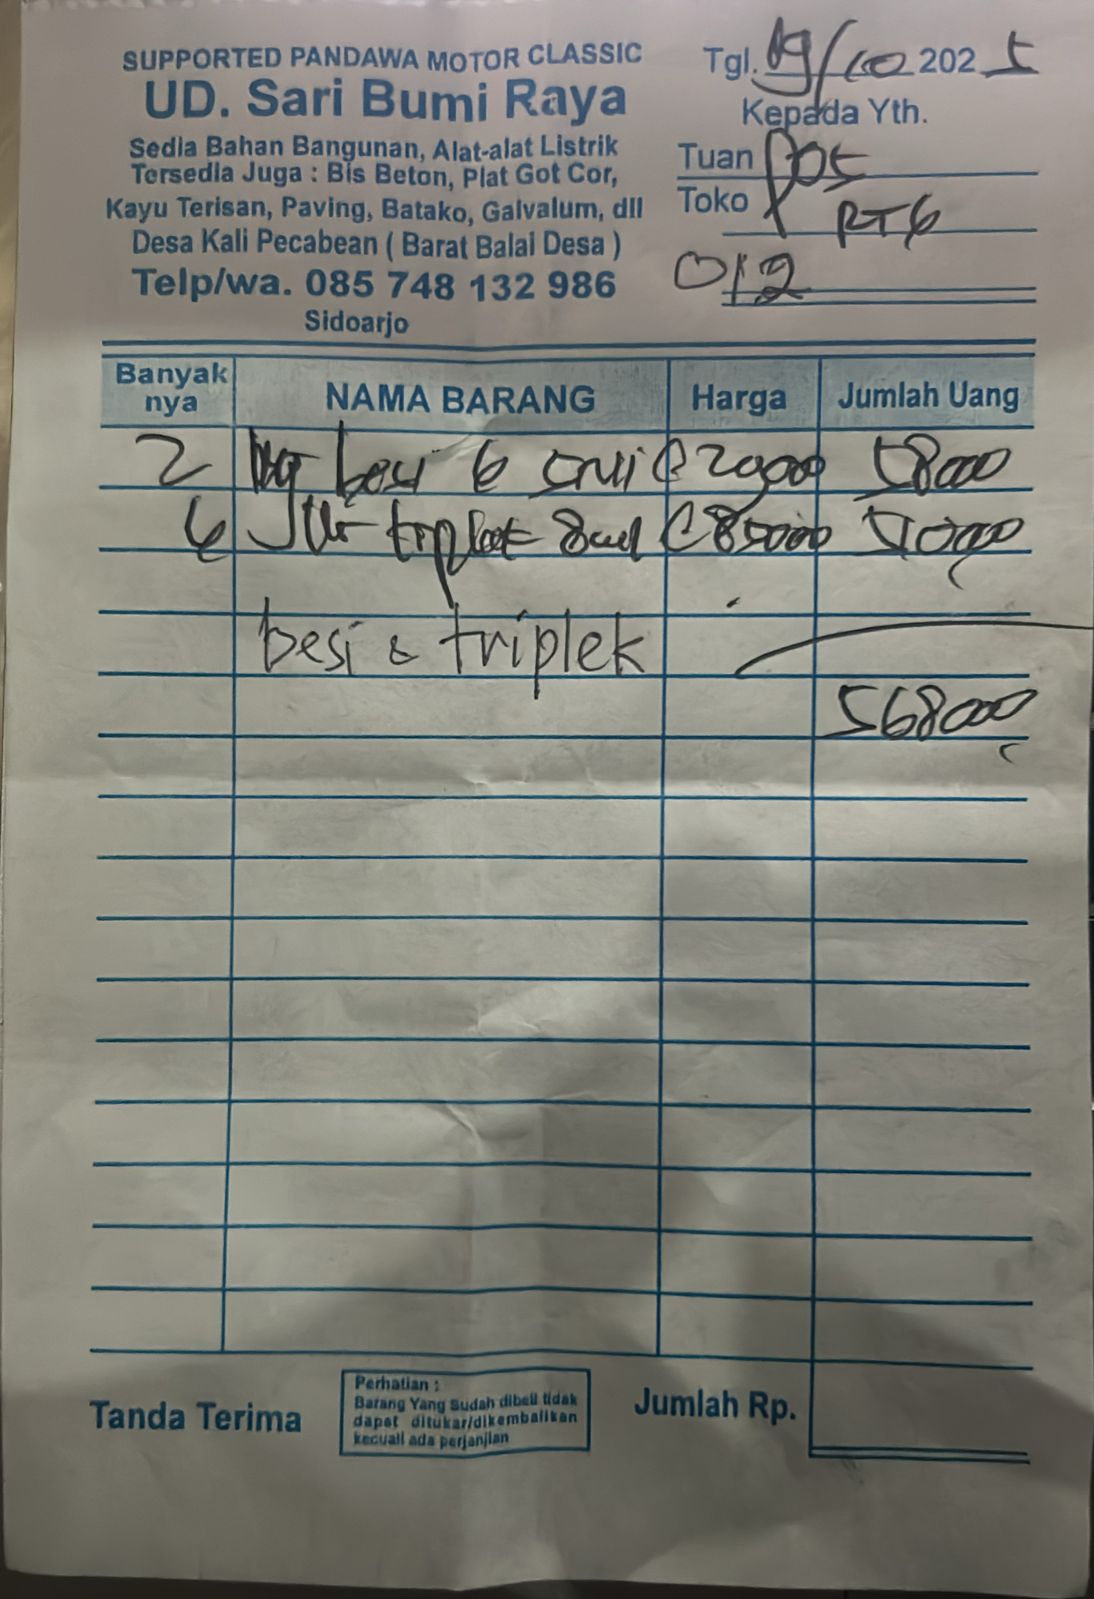 SUPPORTED PANDAWA MOTOR CLASSIC
UD. Sari Bumi Raya
Sedia Bahan Bangunan, Alat-alat Listrik
Tersedia Juga : Bis Beton, Plat Got Cor,
Kayu Terisan, Paving, Batako, Galvalum, dll
Desa Kali Pecabean ( Barat Balai Desa )
Telp/wa. 085 748 132 986
Sidoarjo
Tgl. 09/10 2025
Kepada Yth.
Tuan Pos
Toko RT6
012
Banyak nya NAMA BARANG Harga Jumlah Uang
2 besi 6 58000
6 triplek 8 @85000 510000
besi & triplek
568000
Tanda Terima
Perhatian :
Barang Yang Sudah dibeli tidak
dapat ditukar/dikembalikan
kecuali ada perjanjian
Jumlah Rp.